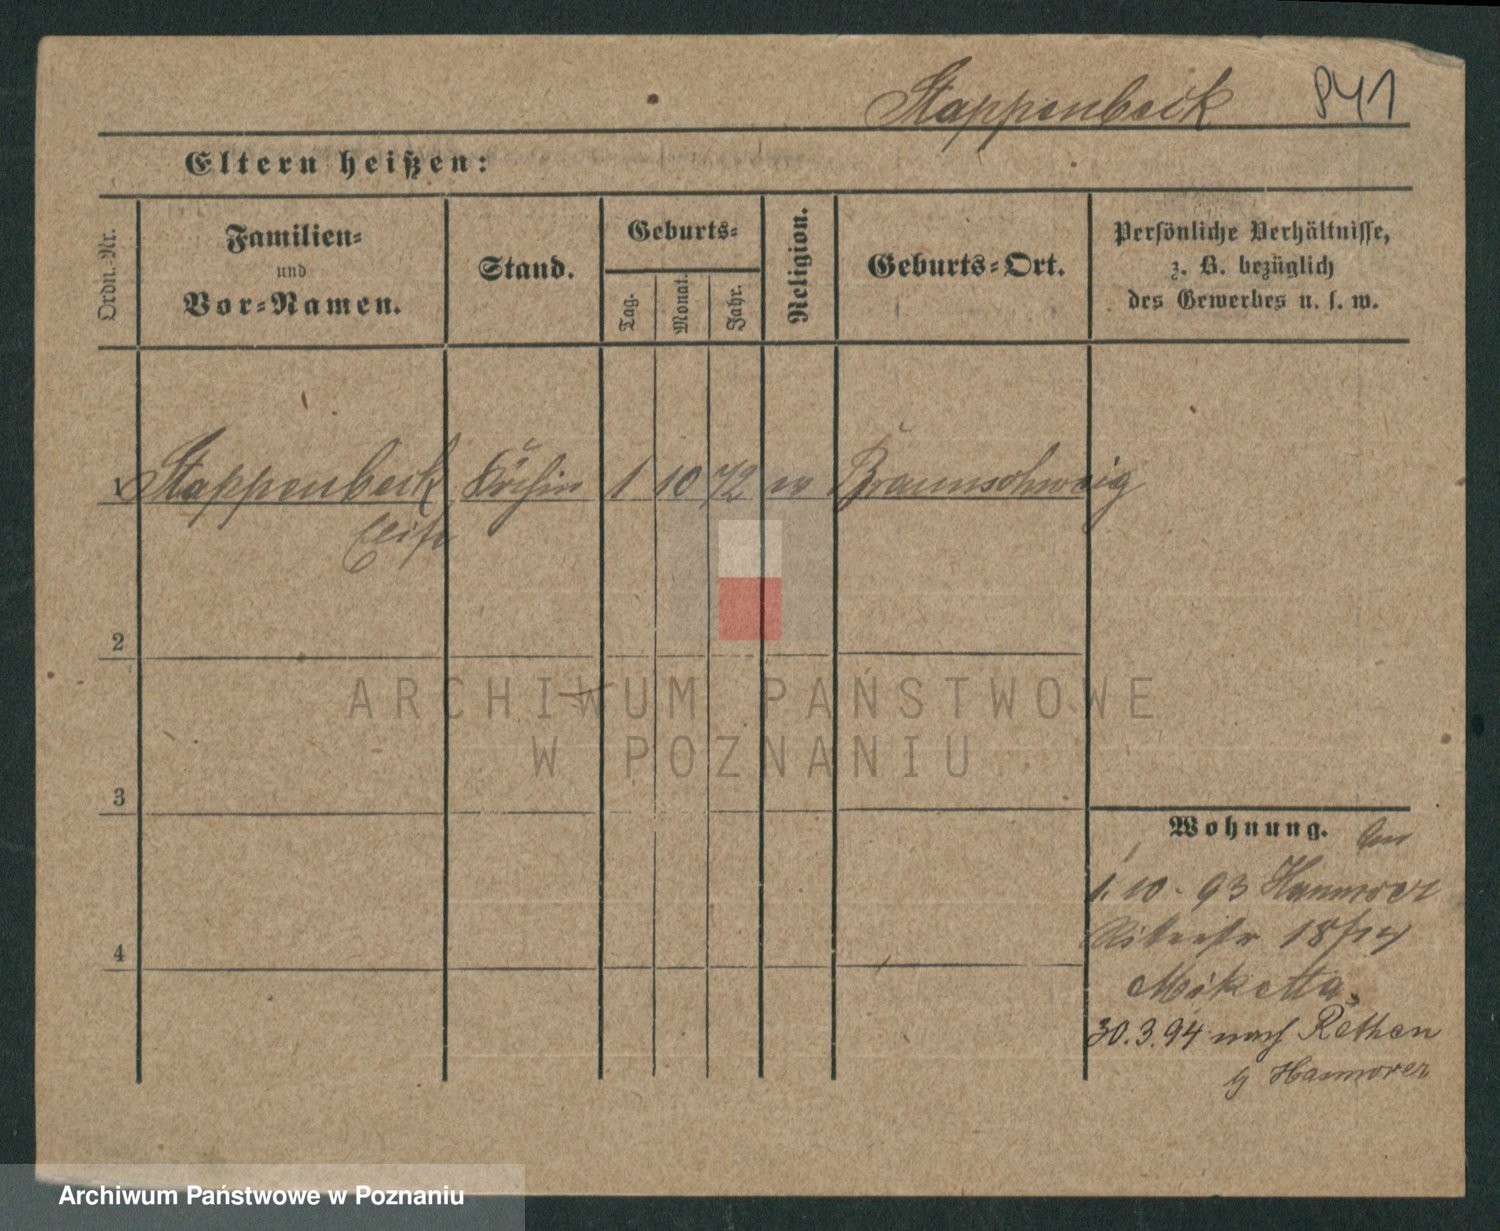 Stappenbeck 841
Eltern heißen:
Ordn.-Nr.
Familien-
und
Vor-Namen.
Stand.
Geburts-
Tag.
Monat.
Jahr.
Religion.
Geburts-Ort.
Persönliche Verhältnisse,
z. B. bezüglich
des Gewerbes u. s. w.
1 Stappenbeck Köchin 1 10 72 ev Braunschweig
Elise
2
ARCHIWUM PAŃSTWOWE
W POZNANIU
3
Wohnung.
1. 10. 93 Hannover
Ritterstr 18/24
Miketta
4
30.3.94 nach Rethen
Hannover
Archiwum Państwowe w Poznaniu